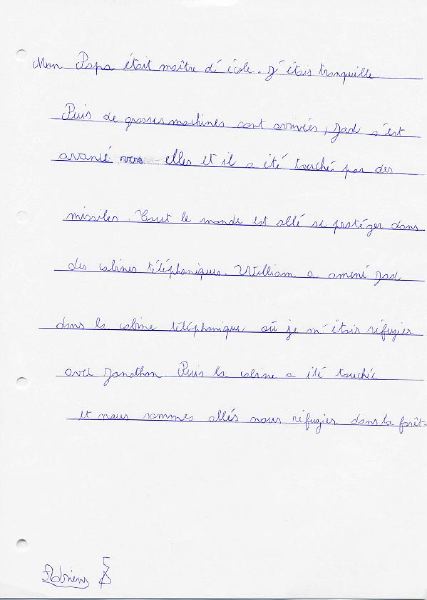 Mon Papa était maître dé école. J'étais tranquille
Puis de grosses machines sont arrivées, Jad s'est
avancé vers elles et il a été touché par des
missiles. Tout le monde est allé se protéger dans
des cabines téléphoniques. William a amené Jad
dans la cabine téléphonique où je m'étais réfugier
avec Jonathan Puis la cabine a été touchée
et nous sommes allés nous réfugier dans la forêt.